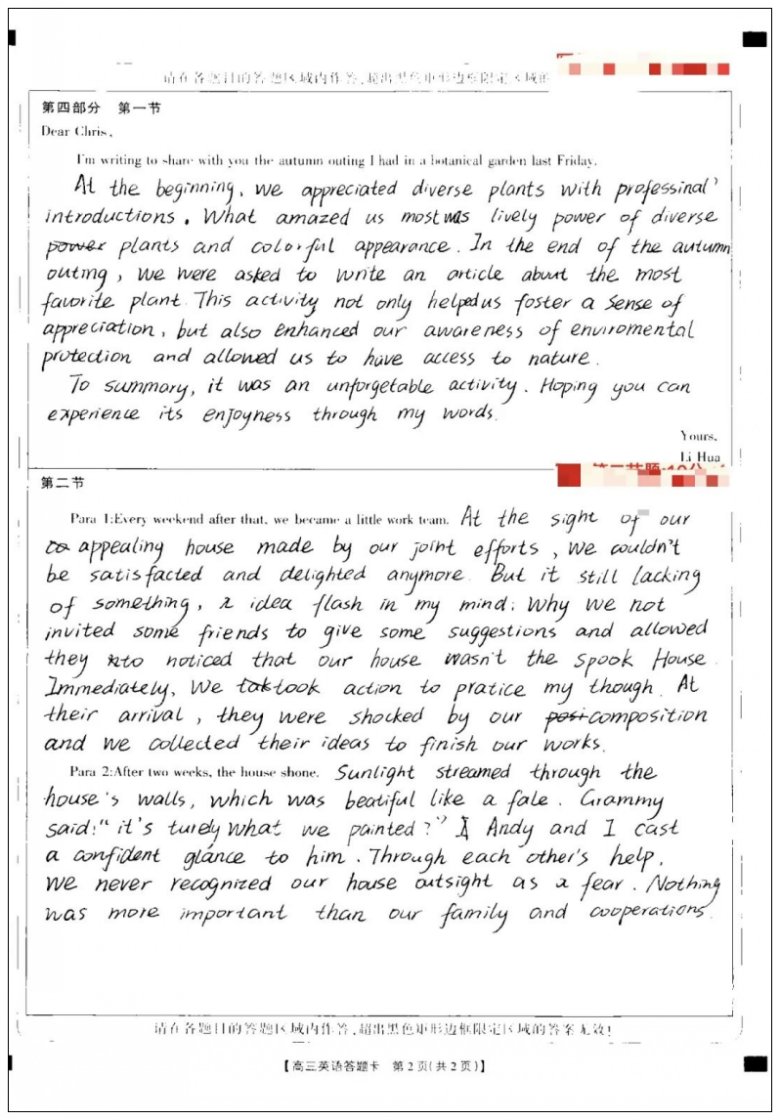 请在各题目的答题区域内作答,超出黑色矩形边框限定区域的
第四部分 第一节
Dear Chris,
I'm writing to share with you the autumn outing I had in a botanical garden last Friday.
At the beginning, we appreciated diverse plants with professinal
introductions. What amazed us most was lively power of diverse
power plants and colorful appearance. In the end of the autumn
outing, we were asked to write an article about the most
favorite plant. This activity not only helped us foster a sense of
appreciation, but also enhanced our awareness of enviromental
protection and allowed us to have access to nature.
To summary, it was an unforgetable activity. Hoping you can
experience its enjoyness through my words.
Yours,
Li Hua
第二节
Para 1:Every weekend after that, we became a little work team. At the sight of our
appealing house made by our joint efforts, we couldn't
be satisfacted and delighted anymore. But it still lacking
of something, a idea flash in my mind: Why we not
invited some friends to give some suggestions and allowed
they to noticed that our house wasn't the Spook House.
Immediately, We took action to pratice my though. At
their arrival, they were shocked by our composition
and we collected their ideas to finish our works.
Para 2:After two weeks, the house shone. Sunlight streamed through the
house's walls, which was beatiful like a fale. Grammy
said:"it's turely what we painted?" Andy and I cast
a confident glance to him. Through each other's help,
we never recognized our house outsight as a fear. Nothing
was more important than our family and cooperations.
请在各题目的答题区域内作答,超出黑色矩形边框限定区域的答案无效!
【高三英语答题卡 第2页(共2页)】